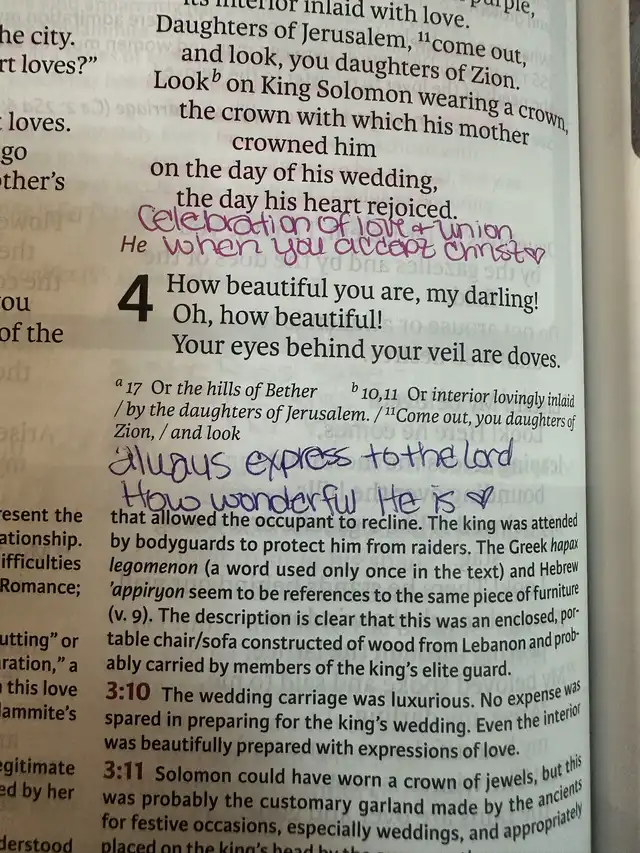 he city.
rt loves?"
loves.
go
other's
ou
of the
resent the
ationship.
ifficulties
Romance;
utting" or
ration," a
this love
lammite's
egitimate
ed by her
derstood
its interior inlaid with love.
Daughters of Jerusalem, ¹¹come out,
and look, you daughters of Zion.
Lookᵇ on King Solomon wearing a crown,
the crown with which his mother
crowned him
on the day of his wedding,
the day his heart rejoiced.
Celebration of love + union
He when you accept Christ♡
4 How beautiful you are, my darling!
Oh, how beautiful!
Your eyes behind your veil are doves.
ᵃ 17 Or the hills of Bether ᵇ 10,11 Or interior lovingly inlaid
/ by the daughters of Jerusalem. / ¹¹Come out, you daughters of
Zion, / and look
always express to the Lord
How wonderful He is ♡
that allowed the occupant to recline. The king was attended
by bodyguards to protect him from raiders. The Greek hapax
legomenon (a word used only once in the text) and Hebrew
'appiryon seem to be references to the same piece of furniture
(v. 9). The description is clear that this was an enclosed, por-
table chair/sofa constructed of wood from Lebanon and prob-
ably carried by members of the king's elite guard.
3:10 The wedding carriage was luxurious. No expense was
spared in preparing for the king's wedding. Even the interior
was beautifully prepared with expressions of love.
3:11 Solomon could have worn a crown of jewels, but this
was probably the customary garland made by the ancients
for festive occasions, especially weddings, and appropriately
placed on the king's head by the